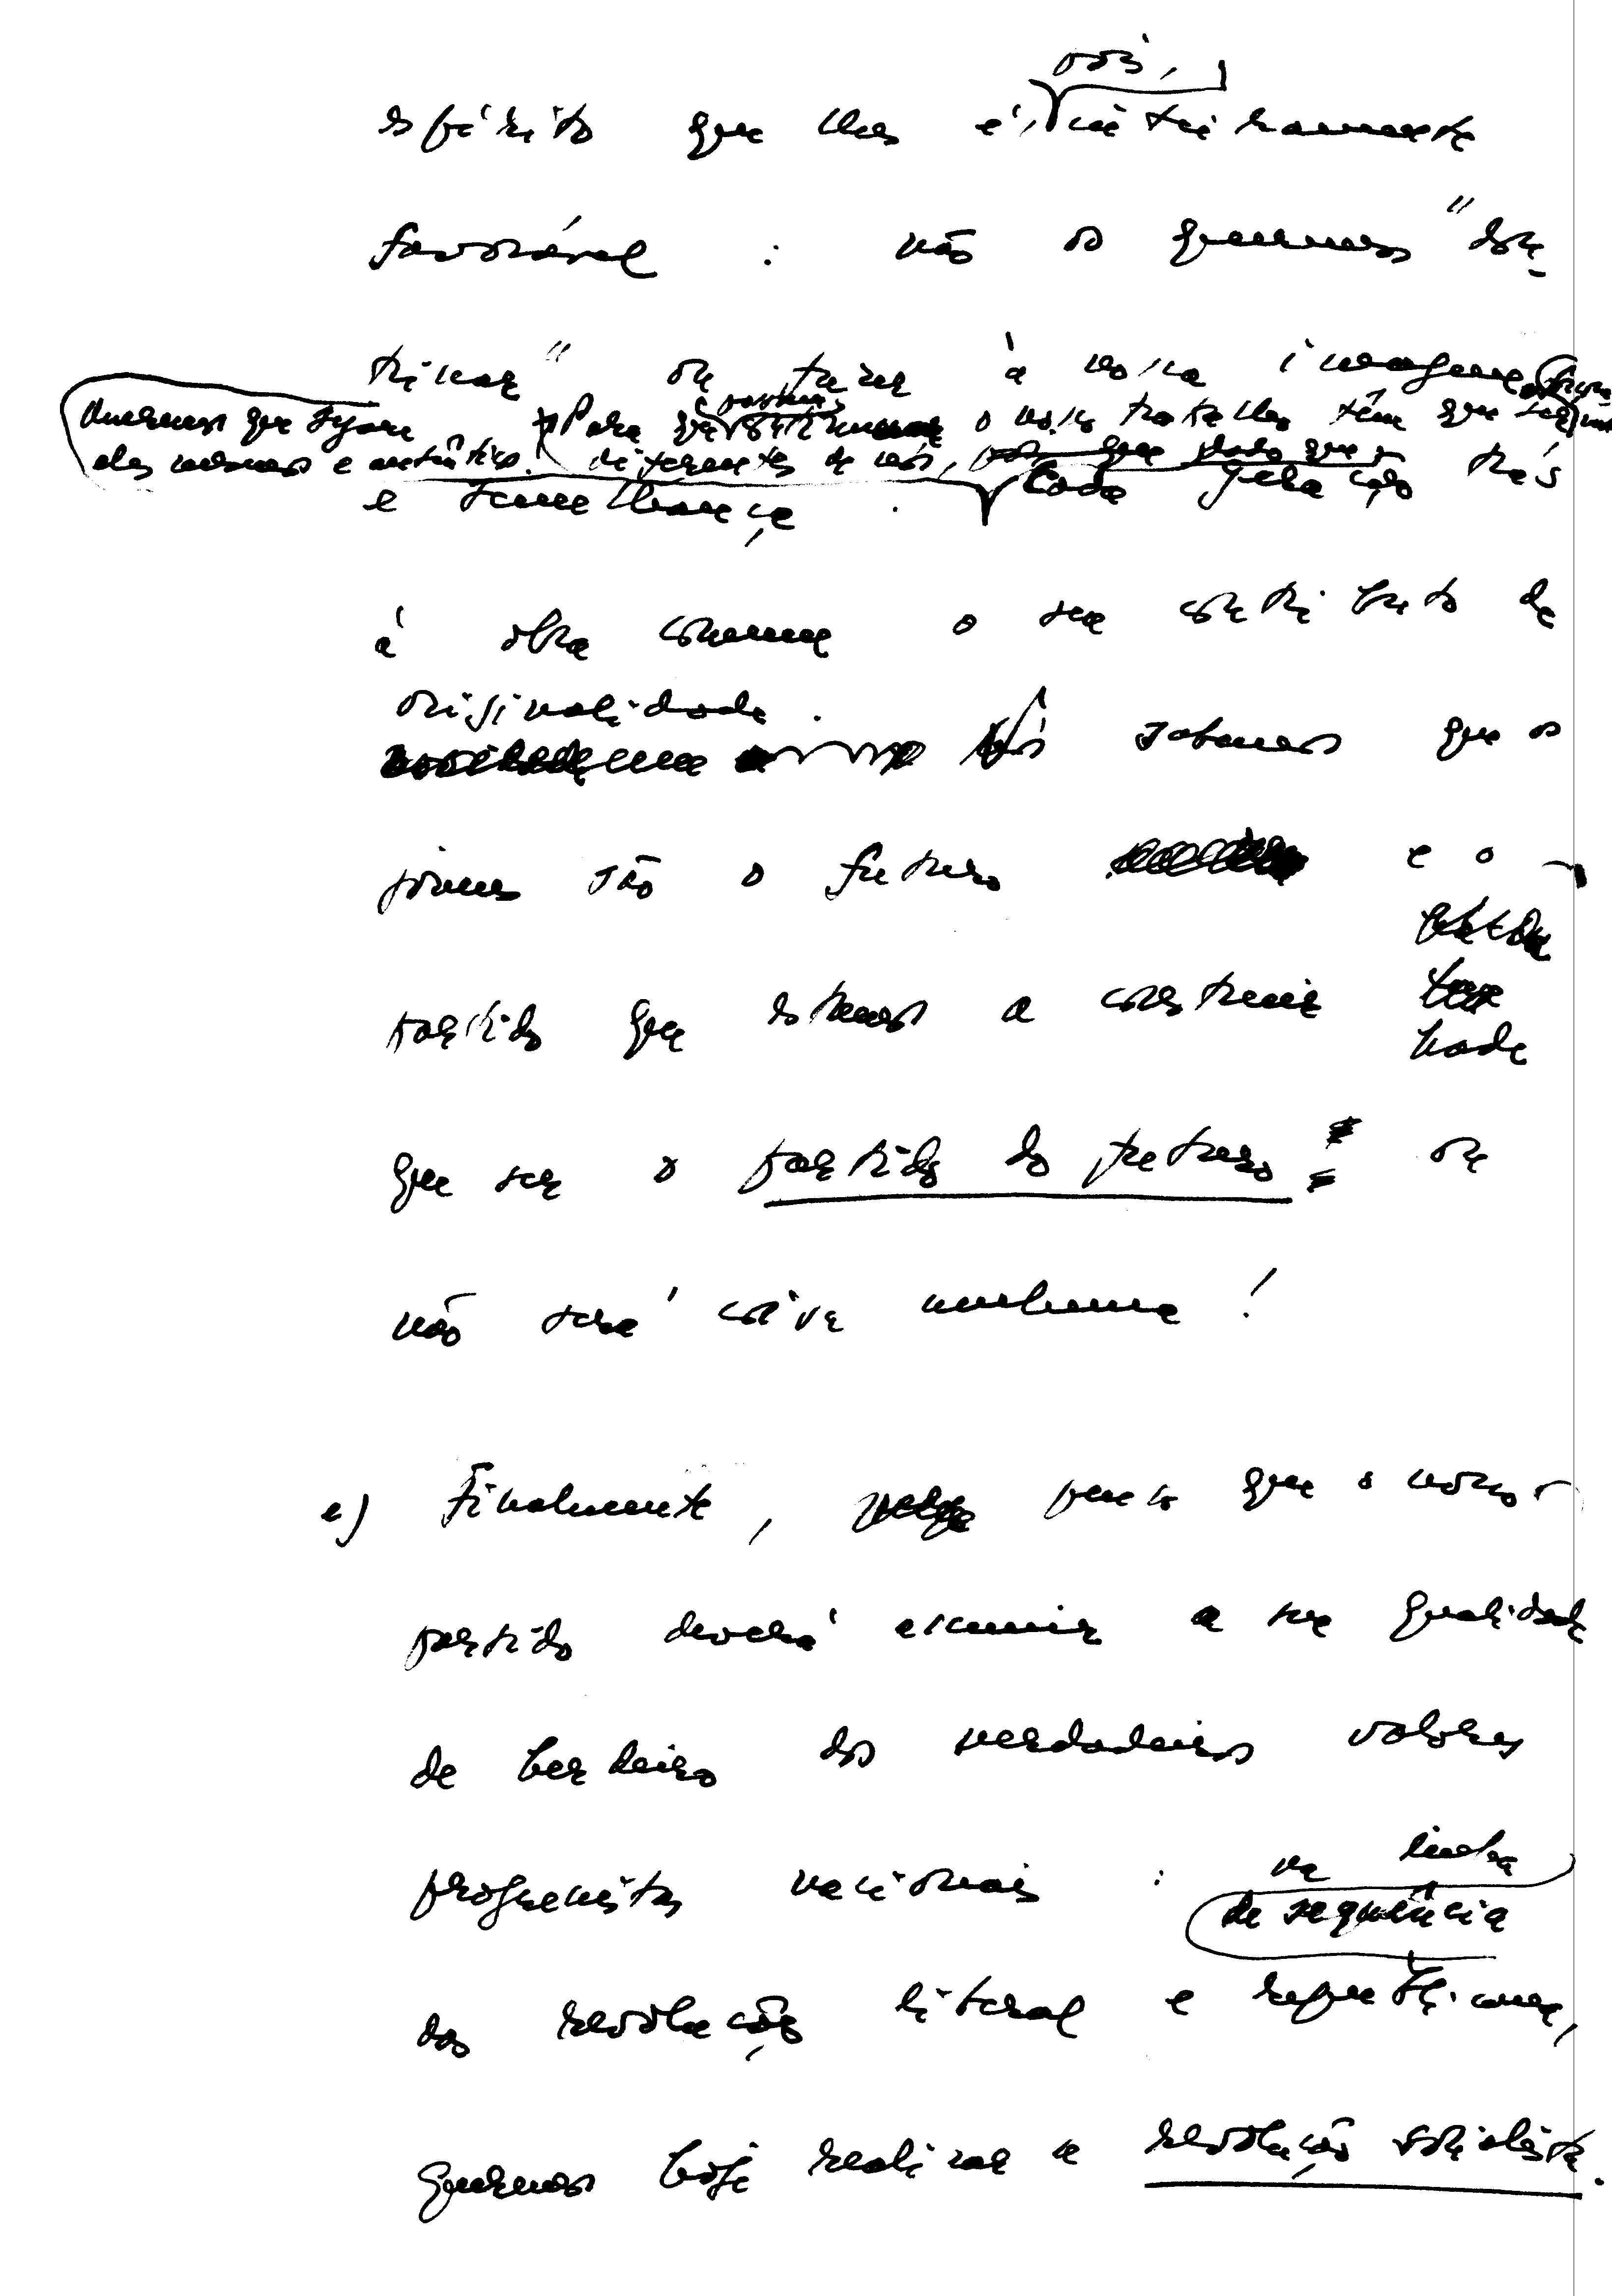 nós,
espírito que lhes é, inteiramente
favorável : nós os queremos "dou-
trinar" ou fazer à nossa imagem
Queremos que sejam Para que o nosso trabalho têm que ser
eles mesmos e autênticos. diferentes de nós, dado que
e semelhança . Cada geração trás
à obra comum o seu contributo de
originalidade .
Nós sabemos que os
jovens são o futuro e o
partido que estamos a construir
nada
que ser o partido do futuro ou
não será coisa nenhuma !
e) Finalmente , penso que o nosso
partido deverá assumir a sua qualidade
de herdeiro dos verdadeiros valores
progressistas nacionais : na linha
de sequência
das revolução liberal e republicana,
queremos hoje realizar a revolução socialista.